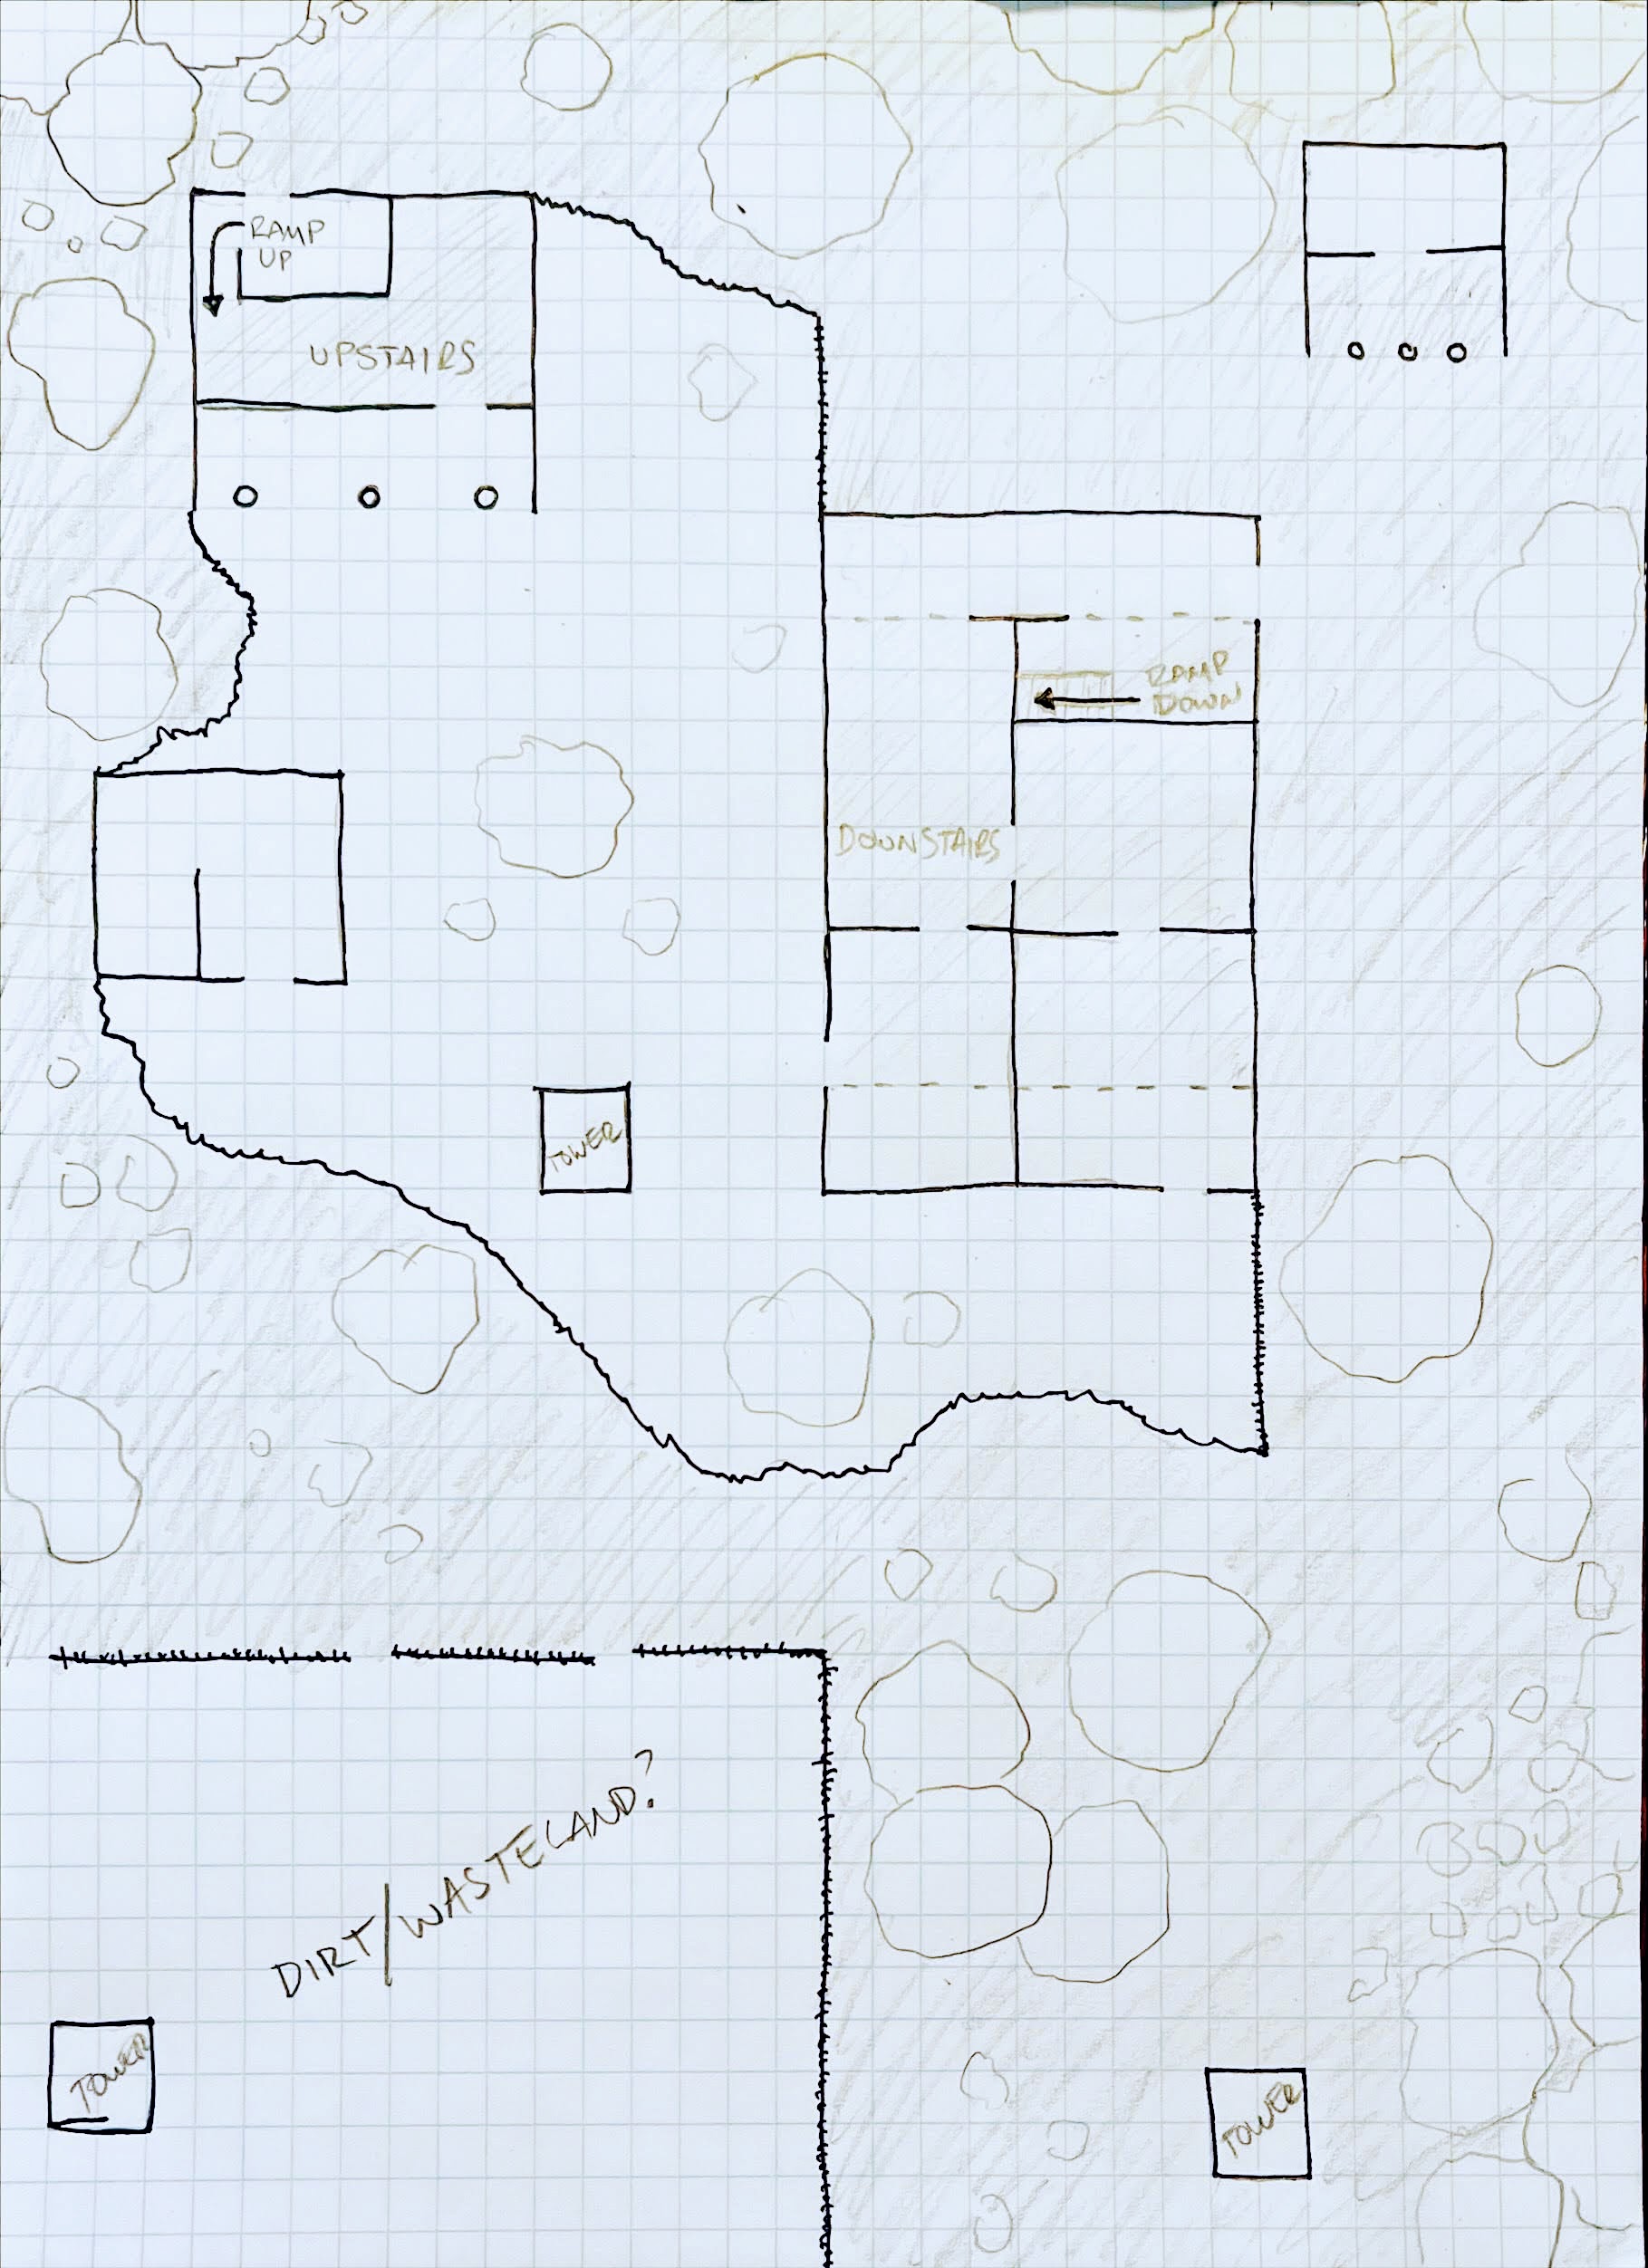 RAMP
UP
UPSTAIRS
RAMP
DOWN
DOWNSTAIRS
TOWER
DIRT/WASTELAND?
TOWER
TOWER